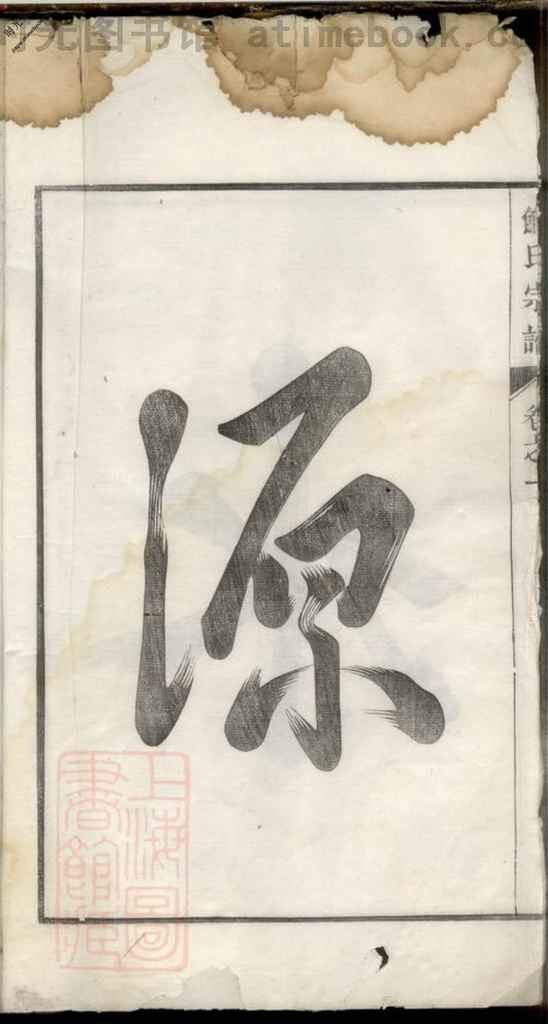 时光图书馆 atimebook.c
氏宗譜
卷之一
源
上海圖
書館藏